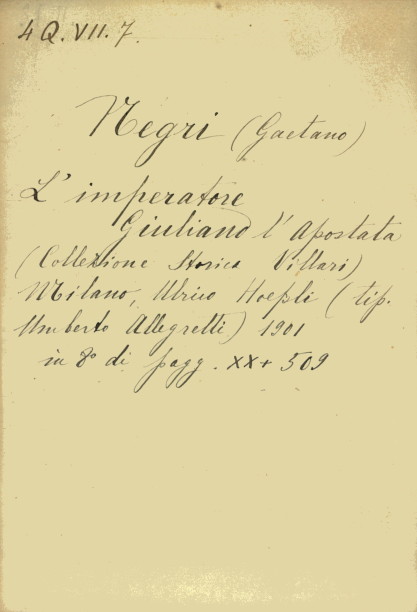 4 Q. VII. 7.
Negri (Gaetano)
L'imperatore
Giuliano l'Apostata
(Collezione Storica Villari)
Milano, Ulrico Hoepli (tip.
Umberto Allegretti) 1901
in 8º di pagg. XX + 509